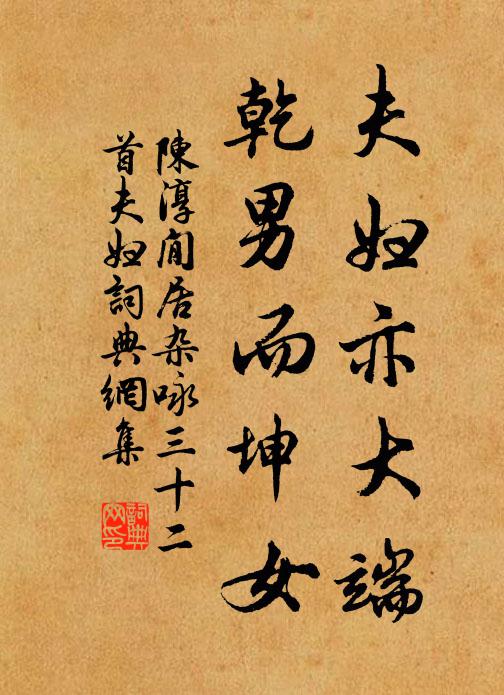 夫妇亦大端
乾男而坤女
陳淳閒居杂咏三十二
首夫妇詞典網集
詞典
网印